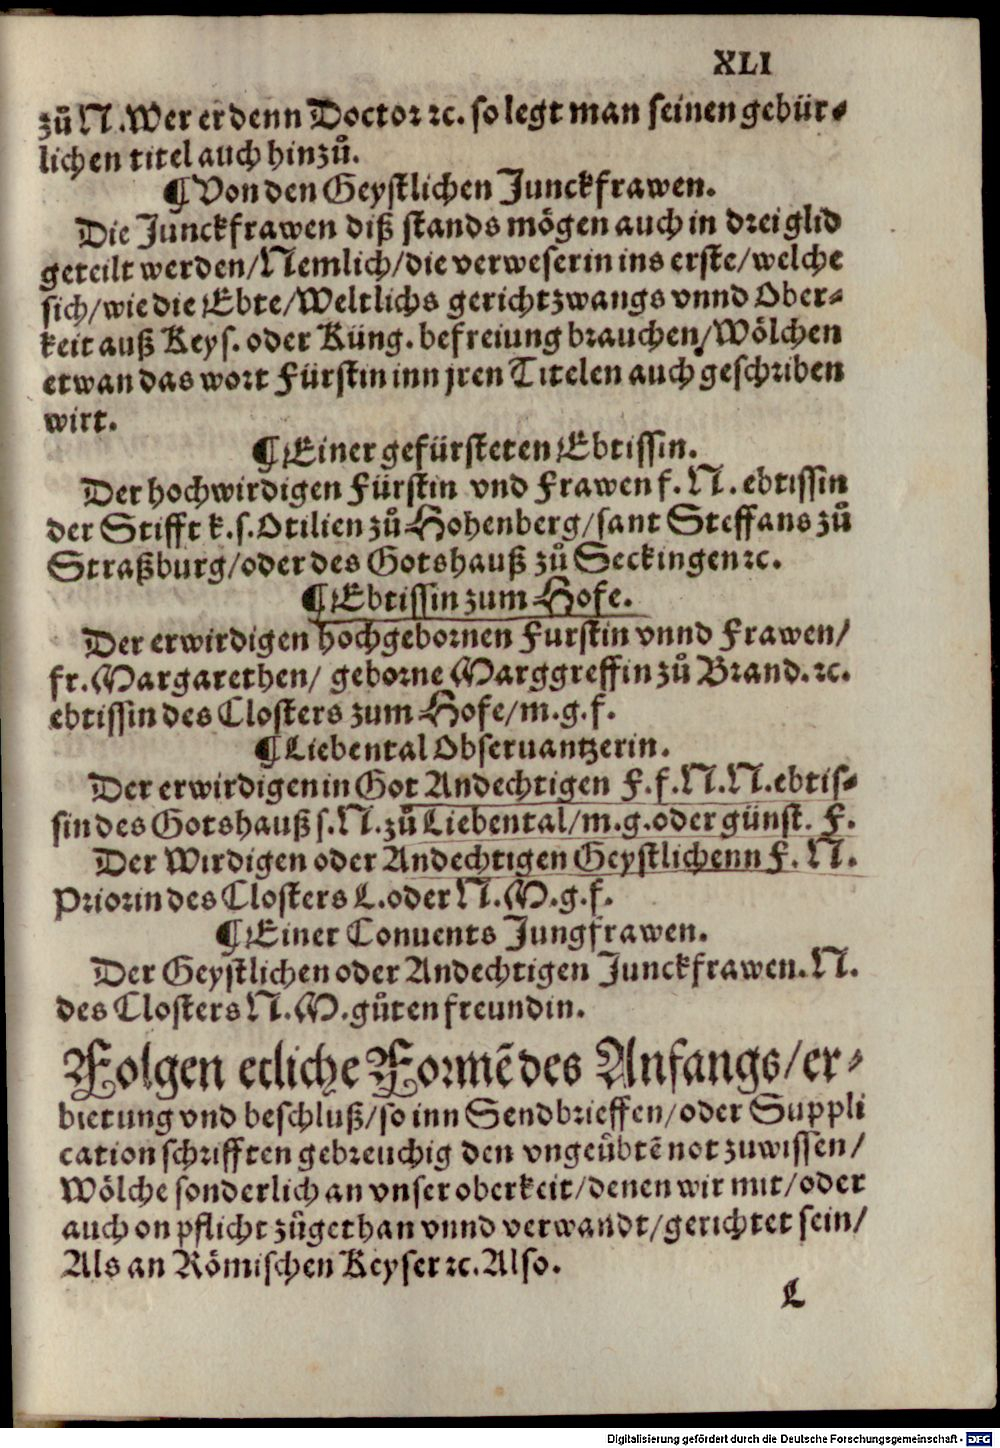 XLI
zů N. Wer er denn Doctor ꝛc. so legt man seinen gebür⸗
lichen titel auch hinzů.
¶ Von den Geystlichen Junckfrawen.
Die Junckfrawen diß stands mögen auch in drei glid
geteilt werden/Nemlich/die verweserin ins erste/welche
sich/wie die Ebte/Weltlichs gerichtzwangs vnnd Ober⸗
keit auß Keys. oder Küng. befreiung brauchen/Wölchen
etwan das wort Fürstin inn jren Titelen auch geschriben
wirt.
¶ Einer gefürsteten Ebtissin.
Der hochwirdigen Fürstin vnd Frawen f. N. ebtissin
der Stifft k. s. Otilien zů Hohenberg/sant Steffans zů
Straßburg/oder des Gotshauß zů Seckingen ꝛc.
¶ Ebtissin zum Hofe.
Der erwirdigen hochgebornen Furstin vnnd Frawen/
fr. Margarethen/ geborne Marggreffin zů Brand. ꝛc.
ebtissin des Closters zum Hofe/m. g. f.
¶ Liebental Obseruantzerin.
Der erwirdigen in Got Andechtigen F. f. N. N. ebtis⸗
sin des Gotshauß s. N. zů Liebental/m. g. oder günst. F.
Der Wirdigen oder Andechtigen Geystlichenn F. N.
Priorin des Closters L. oder N. M. g. f.
¶ Einer Conuents Jungfrawen.
Der Geystlichen oder Andechtigen Junckfrawen. N.
des Closters N. M. gůten freundin.
Folgen etliche Formē des Anfangs/er⸗
bietung vnd beschluß/so inn Sendbrieffen/oder Suppli
cation schrifften gebreuchig den vngeübtē not zuwissen/
Wölche sonderlich an vnser oberkeit/denen wir mit/oder
auch on pflicht zůgethan vnnd verwandt/gerichtet sein/
Als an Römischen Keyser ꝛc. Also.
L
Digitalisierung gefördert durch die Deutsche Forschungsgemeinschaft - DFG